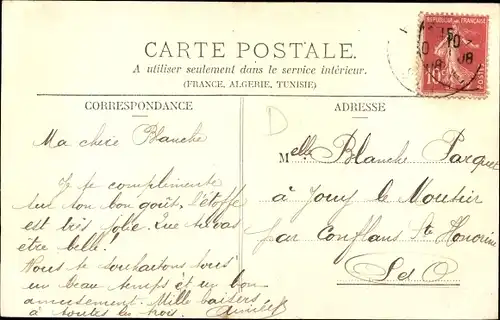 CARTE POSTALE.
A utiliser seulement dans le service intérieur.
(FRANCE, ALGERIE, TUNISIE)
CORRESPONDANCE
Ma chère Blanche
Je te complimente
sur ton bon goût, l'étoffe
est très jolie. Que tu vas
être belle!
Nous te souhaitons tous
un beau temps et un bon
amusement. Mille baisers
à toutes les trois.
ADRESSE
D
Melle Blanche Parquet
à Jouy le Moutier
par Conflans Ste Honorine
S et O
15
10
10
08